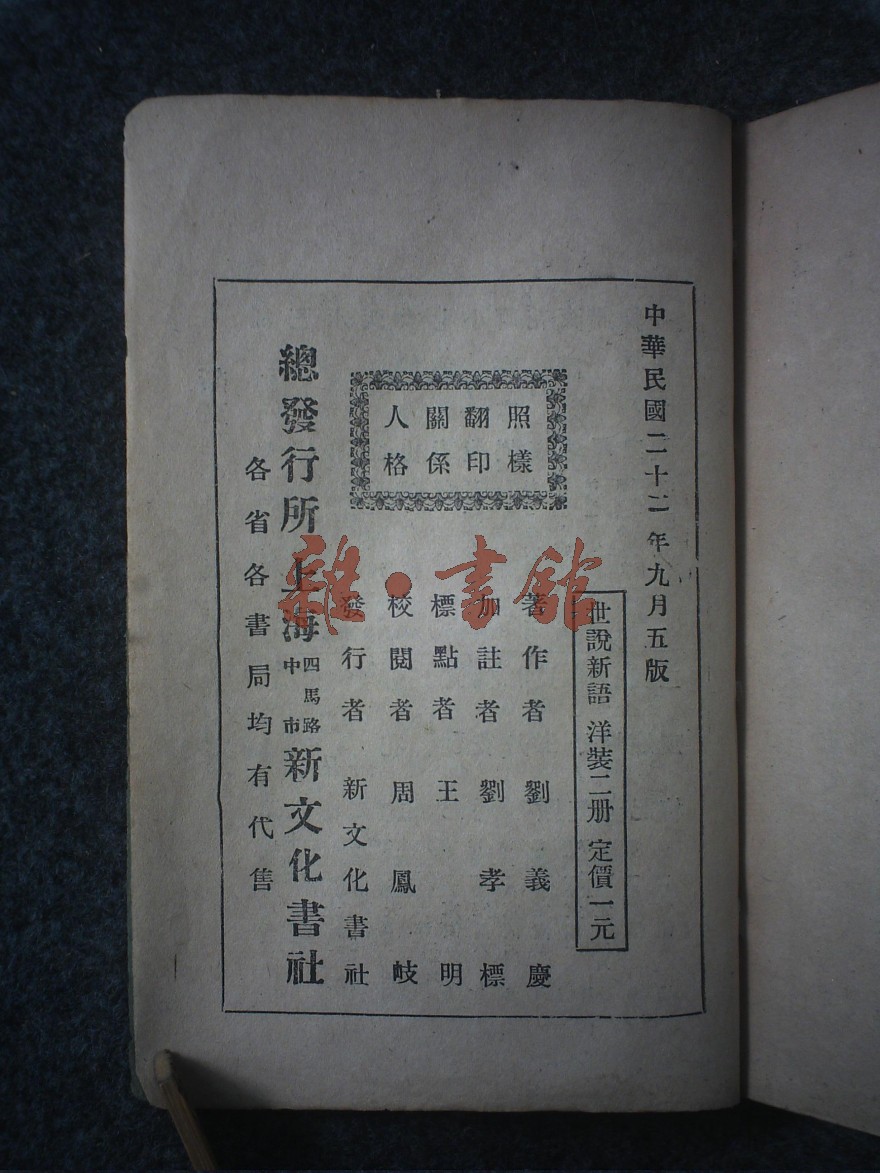 中華民國二十二年九月五版
世說新語 洋裝二册 定價一元
照樣
翻印
關係
人格
著作者 劉義慶
加註者 劉孝標
標點者 王明
校閱者 周鳳岐
發行者 新文化書社
總發行所 上海四馬路中市新文化書社
各省各書局均有代售
雜·書館